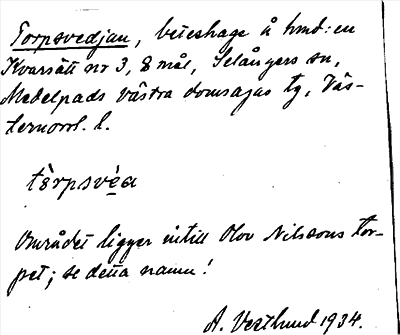 Torpsvedjan, beteshage å hmd:en
Kvarsätt nr 3, 8 mål, Selångers sn,
Medelpads västra domsagas tg, Väs-
ternorrl. l.
tòrpsvèa
Området ligger intill Olov Nilssons tor-
pet; se detta namn!
A. Vestlund 1934.